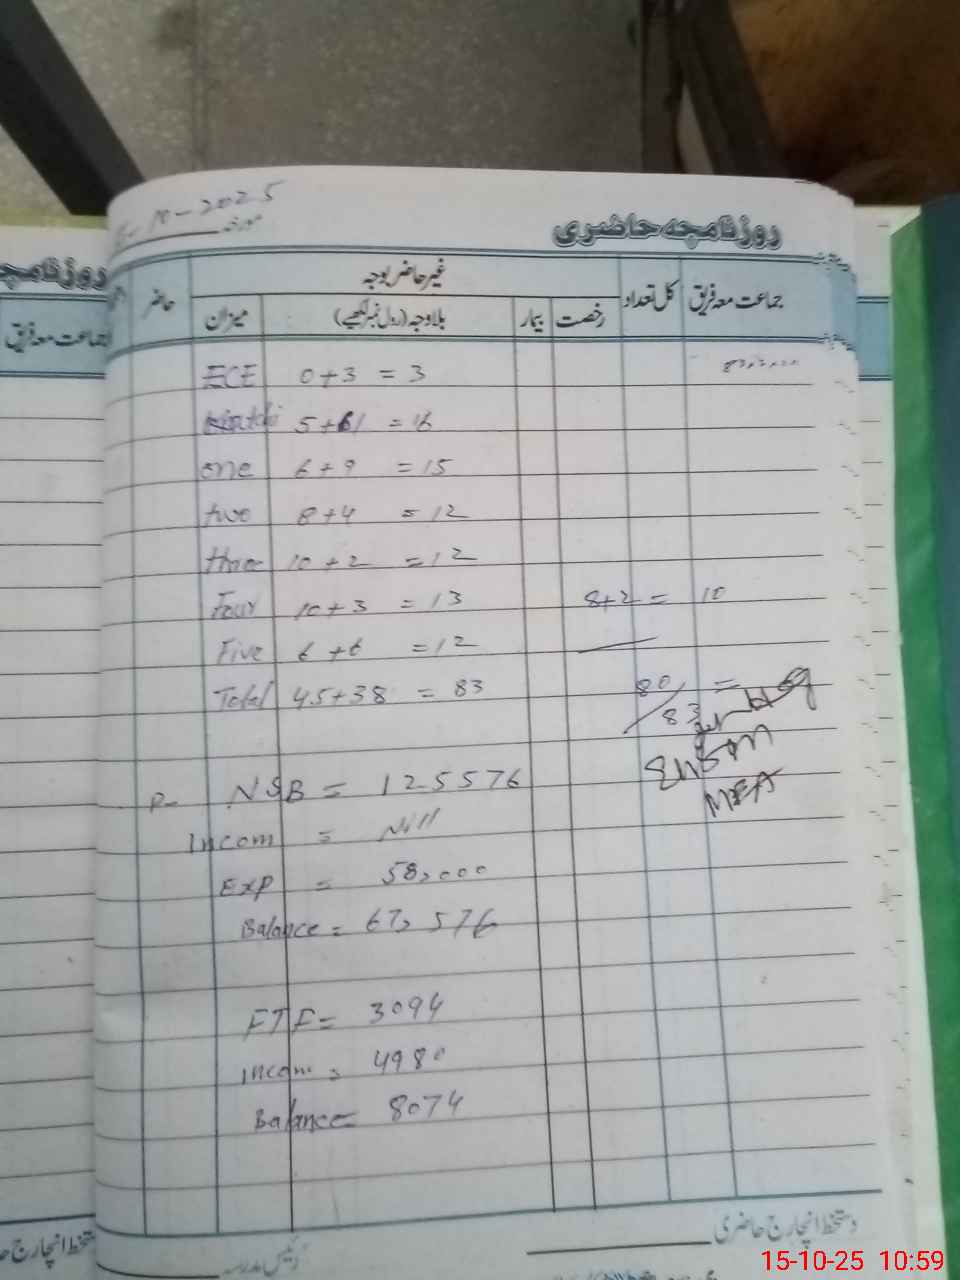 10-2025
مورخہ
روزنامچہ حاضری
جماعت معہ فریق
کل تعداد
غیر حاضر بوجہ
حاضر
رخصت
بیمار
بلاوجہ (رول نمبر لکھیے)
میزان
جماعت معہ فریق
ECE 0+3 = 3
5+61 = 16
one 6+9 = 15
two 8+4 = 12
three 10+2 = 12
Four 10+3 = 13 8+2 = 10
Five 6+6 = 12
Total 45+38 = 83 80/83 =
P- NSB = 125576
MEA
Incom = Nill
Exp = 58,000
Balance = 67,576
FTF = 3094
Incom = 4980
Balance = 8074
دستخط انچارج حاضری
رئیس مدرسہ
15-10-25 10:59